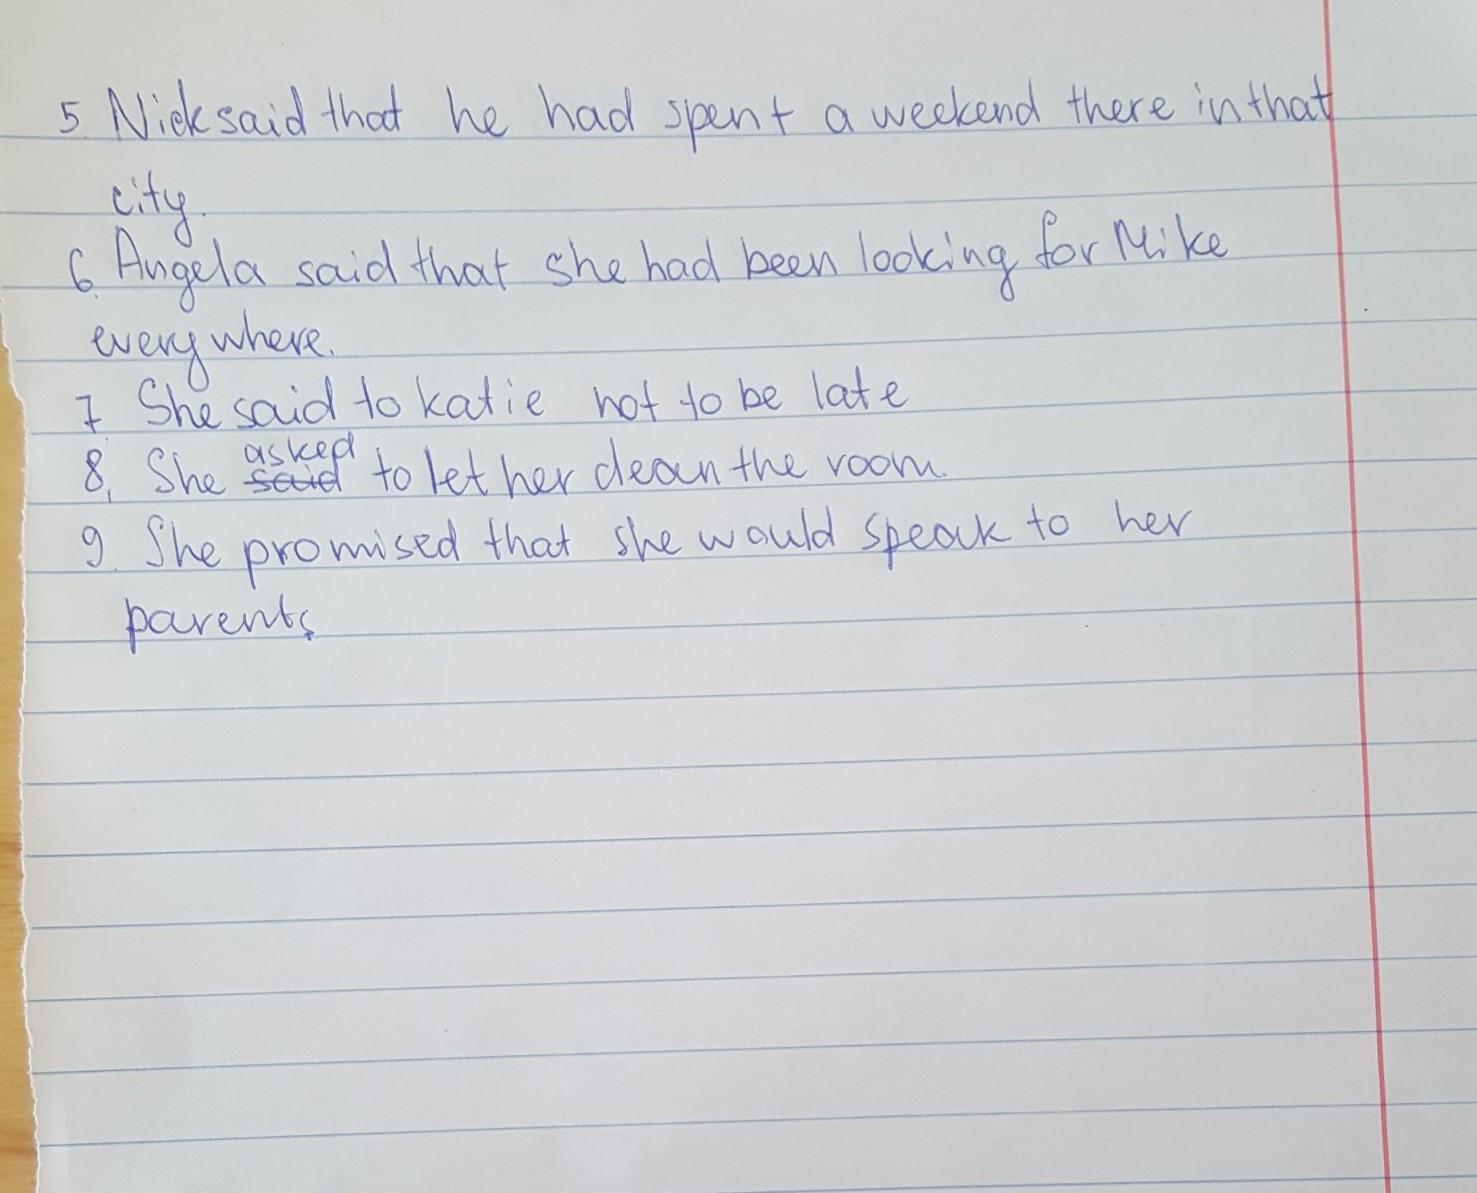 5. Nick said that he had spent a weekend there in that
city.
6. Angela said that she had been looking for Mike
everywhere.
7. She said to katie not to be late
asked
8. She said to let her clean the room.
9. She promised that she would speak to her
parents